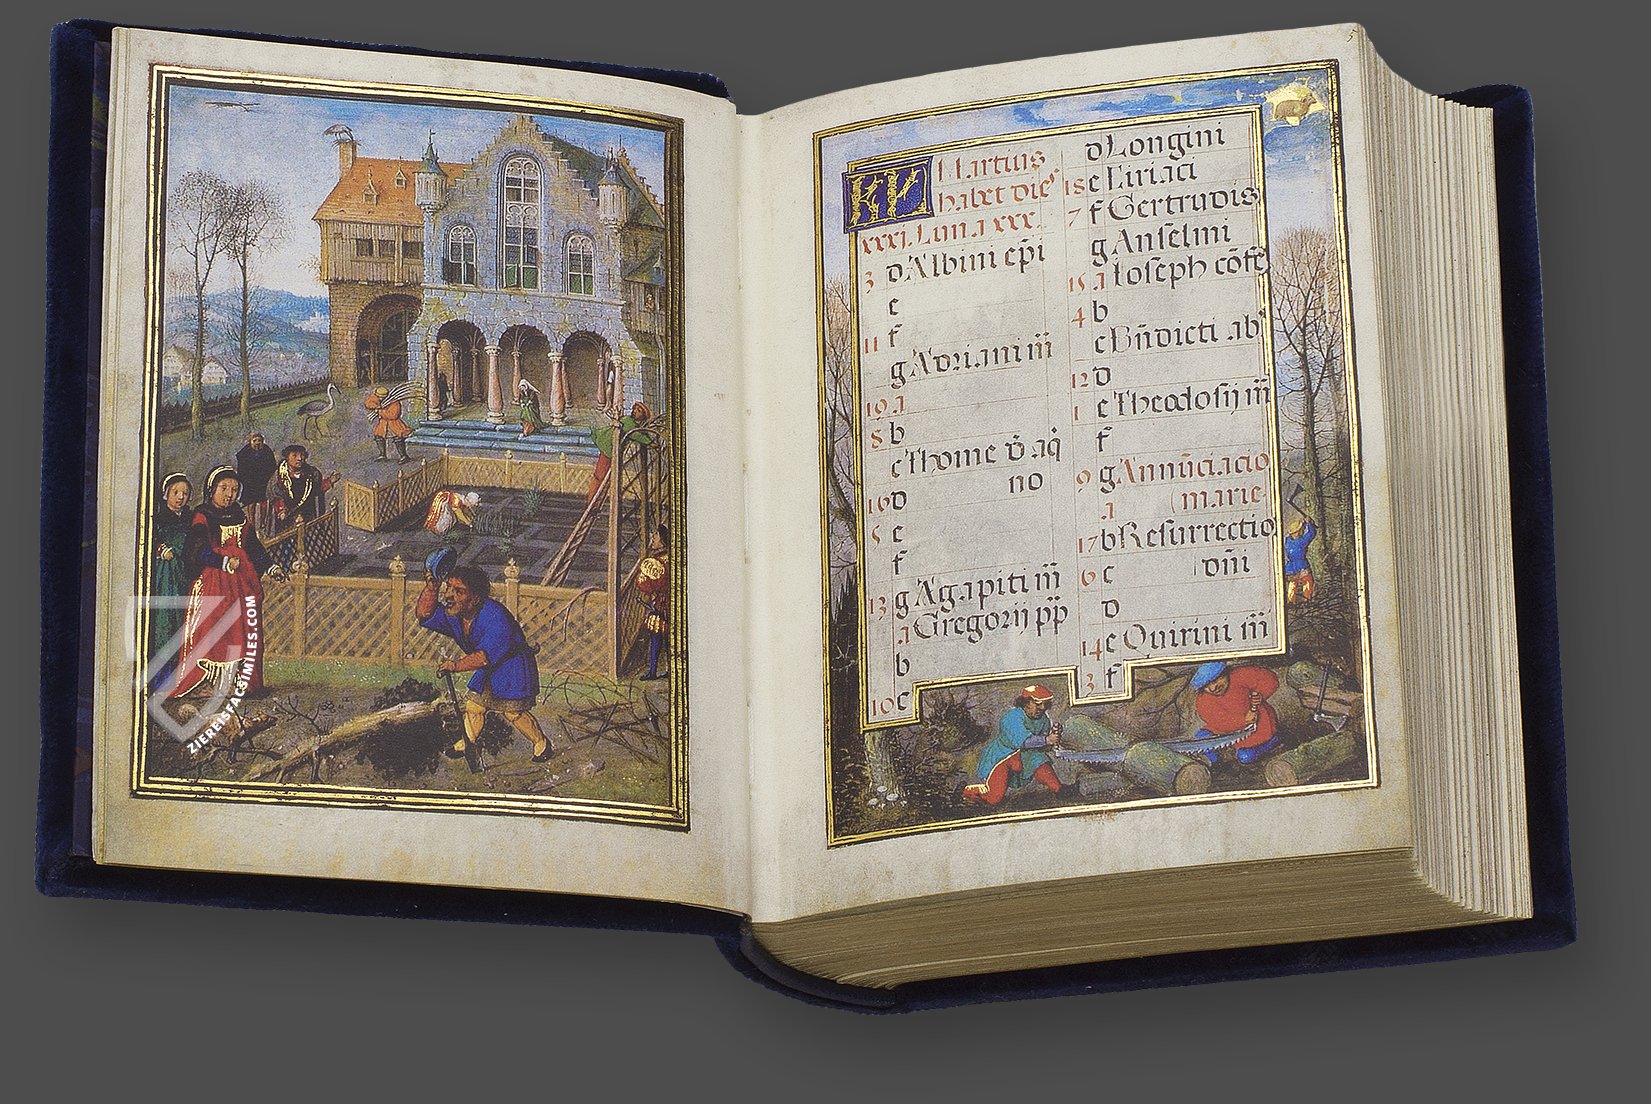 KL Martius
habet dies
xxxi. Luna xxx.
3 d Albini ep̄i
e
11 f
g Adriani m̄
19 a
8 b
c Thome d̄ aq̄
16 d no
5 e
f
13 g Agapiti m̄
a Gregorij pp̄
b
10 c
d Longini
18 e Ciriaci
7 f Gertrudis
g Anselmi
15 a Ioseph cōfes
4 b
c Bn̄dicti ab
12 d
1 e Theodosij m̄
f
9 g Annūciacio
a (marie.
17 b Resurrectio
6 c dn̄i
d
14 e Quirini m̄
3 f
5
ZIEREISFACSIMILES.COM